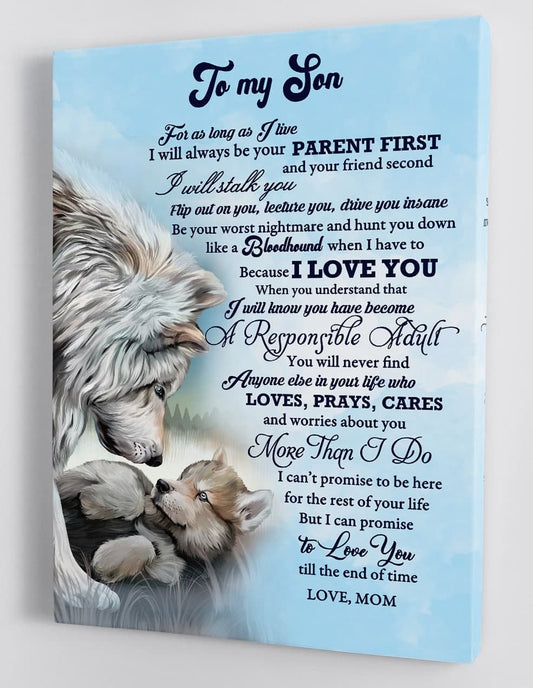 To my Son
For as long as I live
I will always be your PARENT FIRST
and your friend second
I will stalk you
Flip out on you, lecture you, drive you insane
Be your worst nightmare and hunt you down
like a Bloodhound when I have to
Because I LOVE YOU
When you understand that
I will know you have become
A Responsible Adult
You will never find
Anyone else in your life who
LOVES, PRAYS, CARES
and worries about you
More Than I Do
I can't promise to be here
for the rest of your life
But I can promise
to Love You
till the end of time
LOVE, MOM